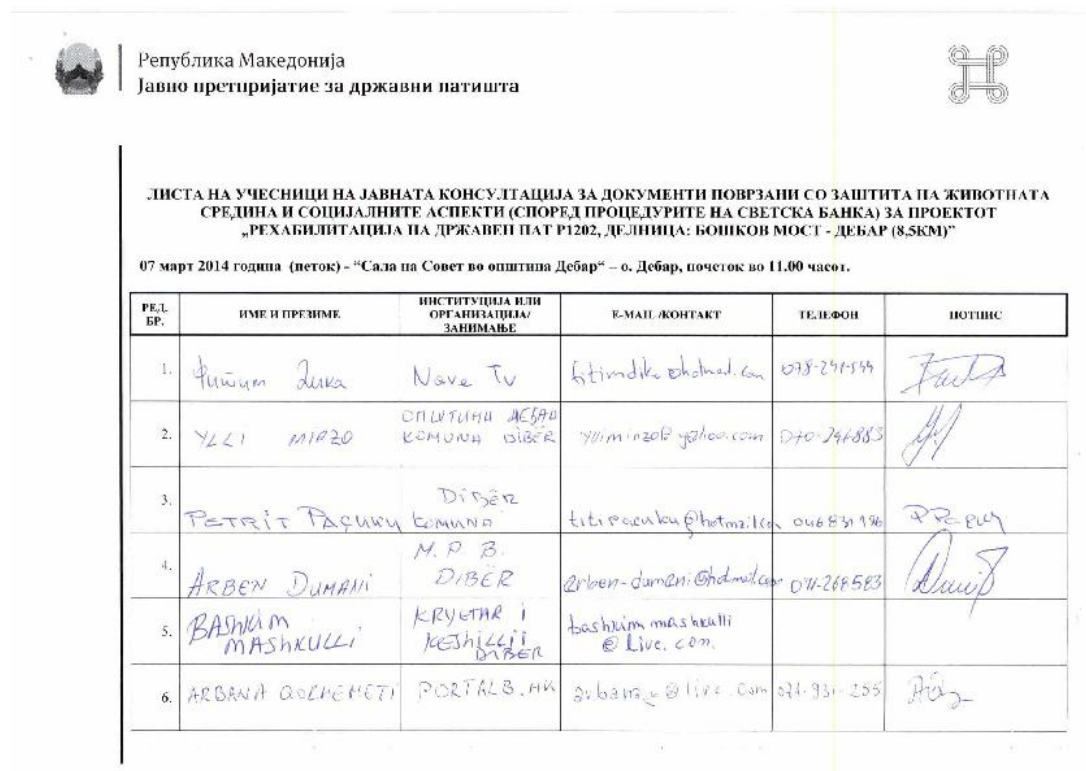 Република Македонија
Јавно претпријатие за државни патишта
ЛИСТА НА УЧЕСНИЦИ НА ЈАВНАТА КОНСУЛТАЦИЈА ЗА ДОКУМЕНТИ ПОВРЗАНИ СО ЗАШТИТА НА ЖИВОТНАТА
СРЕДИНА И СОЦИЈАЛНИТЕ АСПЕКТИ (СПОРЕД ПРОЦЕДУРИТЕ НА СВЕТСКА БАНКА) ЗА ПРОЕКТОТ
„РЕХАБИЛИТАЦИЈА НА ДРЖАВЕН ПАТ Р1202, ДЕЛНИЦА: БОШКОВ МОСТ - ДЕБАР (8,5КМ)”
07 март 2014 година (петок) - “Сала на Совет во општина Дебар“ – о. Дебар, почеток во 11.00 часот.
РЕД. БР. ИМЕ И ПРЕЗИМЕ ИНСТИТУЦИЈА ИЛИ ОРГАНИЗАЦИЈА/ ЗАНИМАЊЕ Е-МАIL /КОНТАКТ ТЕЛЕФОН ПОТПИС
1. Фитим Дика Nova Tv
2. YLLI MIRZO ОПШТИНА ДЕБАР KOMUNA DIBËR
3. PETRIT PAÇUKU DIBËR KOMUNA
4. ARBEN DUMANI M.P.B. DIBËR arben-dumani@hotmail.com 071-268583
5. BASHKIM MASHKULLI KRYETAR I KESHILLIT DIBER bashkim mashkulli @ Live. com.
6. ARBANA PORTALB.MK